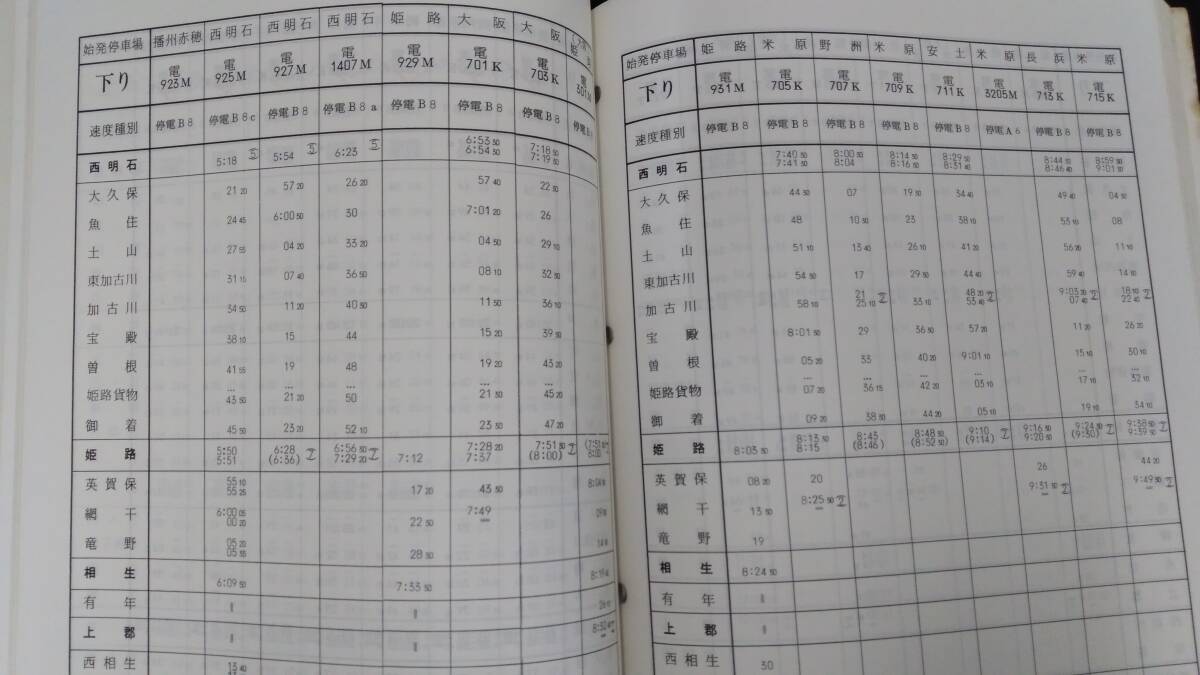 始発停車場 播州赤穂 西明石 西明石 西明石 姫路 大阪 大阪
下り 電923M 電925M 電927M 電1407M 電929M 電701K 電703K 301M
速度種別 停電B8 停電B8c 停電B8 停電B8a 停電B8 停電B8 停電B8
西明石 5:18 5:54 6:23 6:53 50 7:18 50
6:54 50 7:19 50
大久保 21 20 57 20 26 20 57 40 22 50
魚住 24 45 6:00 50 30 7:01 20 26
土山 27 55 04 20 33 20 04 50 29 10
東加古川 31 15 07 40 36 50 08 10 32 50
加古川 34 50 11 20 40 50 11 50 36 10
宝殿 38 10 15 44 15 20 39 50
曽根 41 55 19 48 19 20 43 20
… … … … …
姫路貨物 43 50 21 20 50 21 50 45 20
御着 45 50 23 20 52 10 23 50 47 20
姫路 5:50 6:28 6:56 50 7:12 7:28 20 7:51 50
5:51 (6:36) 7:29 20 7:37 (8:00) 8:00
英賀保 55 10 17 20 43 50
55 25
網干 6:00 05 22 50 7:49
00 20
竜野 05 20 28 50
05 55
相生 6:09 50 7:33 50
有年 ‖ ‖
上郡 ‖ ‖
西相生 13 40
始発停車場 姫路 米原 野洲 米原 安土 米原 長浜 米原
下り 電931M 電705K 電707K 電709K 電711K 電3205M 電713K 電715K
速度種別 停電B8 停電B8 停電B8 停電B8 停電B8 停電A6 停電B8 停電B8
西明石 7:40 50 8:00 50 8:14 50 8:29 50 8:44 50 8:59 50
7:41 50 8:04 8:16 50 8:31 40 8:46 40 9:01 50
大久保 44 50 07 19 50 34 40 49 40 04 50
魚住 48 10 50 23 38 10 53 10 08
土山 51 10 13 40 26 10 41 20 56 20 11 10
東加古川 54 50 17 29 50 44 40 59 40 14 50
加古川 58 10 21 33 10 48 20 9:03 20 18 10
25 10 53 40 07 40 22 40
宝殿 8:01 50 29 36 50 57 20 11 20 26 20
曽根 05 20 33 40 20 9:01 10 15 10 30 10
… … … … … …
姫路貨物 07 20 36 15 42 20 03 10 17 10 32 10
御着 09 20 38 50 44 20 05 10 19 10 34 10
姫路 8:03 50 8:13 50 8:43 8:48 50 9:10 9:16 50 9:24 50 9:38 50
8:15 (8:46) (8:52 50) (9:14) 9:20 50 (9:30) 9:39 50
英賀保 08 20 20 26 44 20
網干 13 50 8:25 50 9:31 50 9:49 50
竜野 19
相生 8:24 50
有年 ‖
上郡 ‖
西相生 30